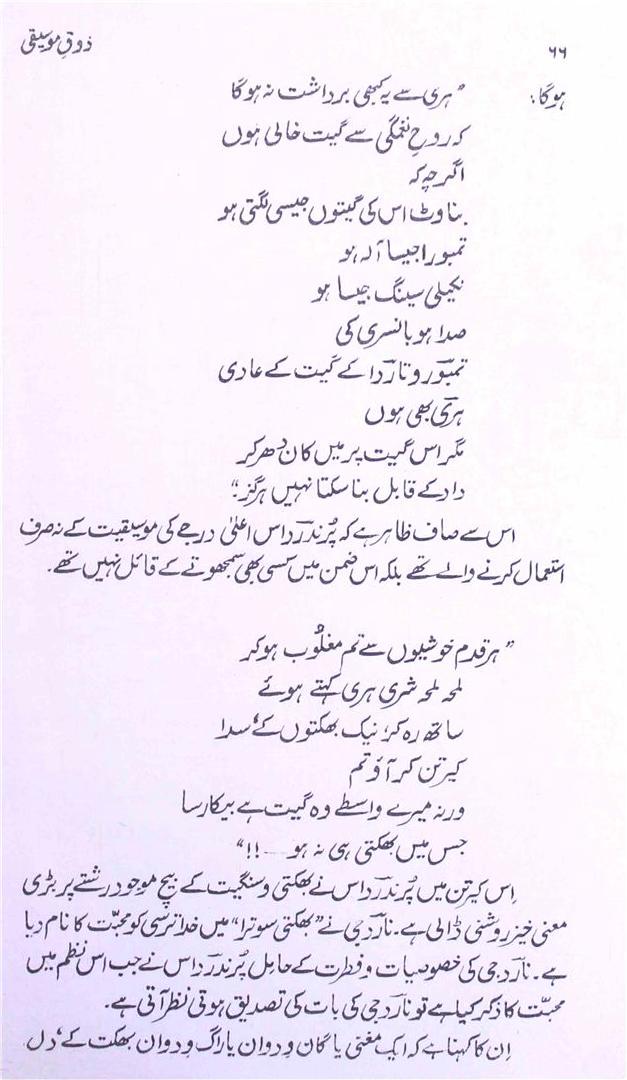 ۶۶ ذوقِ موسیقی
ہوگا: " ہری سے یہ کبھی برداشت نہ ہوگا
کہ روحِ نغمگی سے گیت خالی ہوں
اگرچہ کہ
بناوٹ اس کی گیتوں جیسی لگتی ہو
تمبورا جیسا آلہ ہو
نکیلی سینگ جیسا ہو
صدا ہو بانسری کی
تمبور و ناردا کے گیت کے عادی
ہری بھی ہوں
مگر اس گیت پر میں کان دھر کر
داد کے قابل بنا سکتا نہیں ہرگز"
اس سے صاف ظاہر ہے کہ پُرندرداس اعلیٰ درجے کی موسیقیت کے نہ صرف
استعمال کرنے والے تھے بلکہ اس ضمن میں کسی بھی سمجھوتے کے قائل نہیں تھے۔
" ہر قدم خوشیوں سے تم مغلُوب ہو کر
لمحہ لمحہ شری ہری کہتے ہوئے
ساتھ رہ کر، نیک بھکتوں کے، سدا
کیرتن کر آؤ تم
ورنہ میرے واسطے وہ گیت ہے بیکار سا
جس میں بھکتی ہی نہ ہو ــــ !! "
اِس کیرتن میں پُرندرداس نے بھکتی و سنگیت کے بیچ موجود رشتے پر بڑی
معنی خیز روشنی ڈالی ہے۔ نارد جی نے "بھکتی سوترا" میں خدا ترسی کو محبّت کا نام دیا
ہے۔ نارد جی کی خصوصیات و فطرت کے حامل پُرندرداس نے جب اس نظم میں
محبّت کا ذکر کیا ہے تو نارد جی کی بات کی تصدیق ہوتی نظر آتی ہے۔
اِن کا کہنا ہے کہ ایک مغنی یا گان وِدوان یا راگ وِدوان بھکت کے، دل